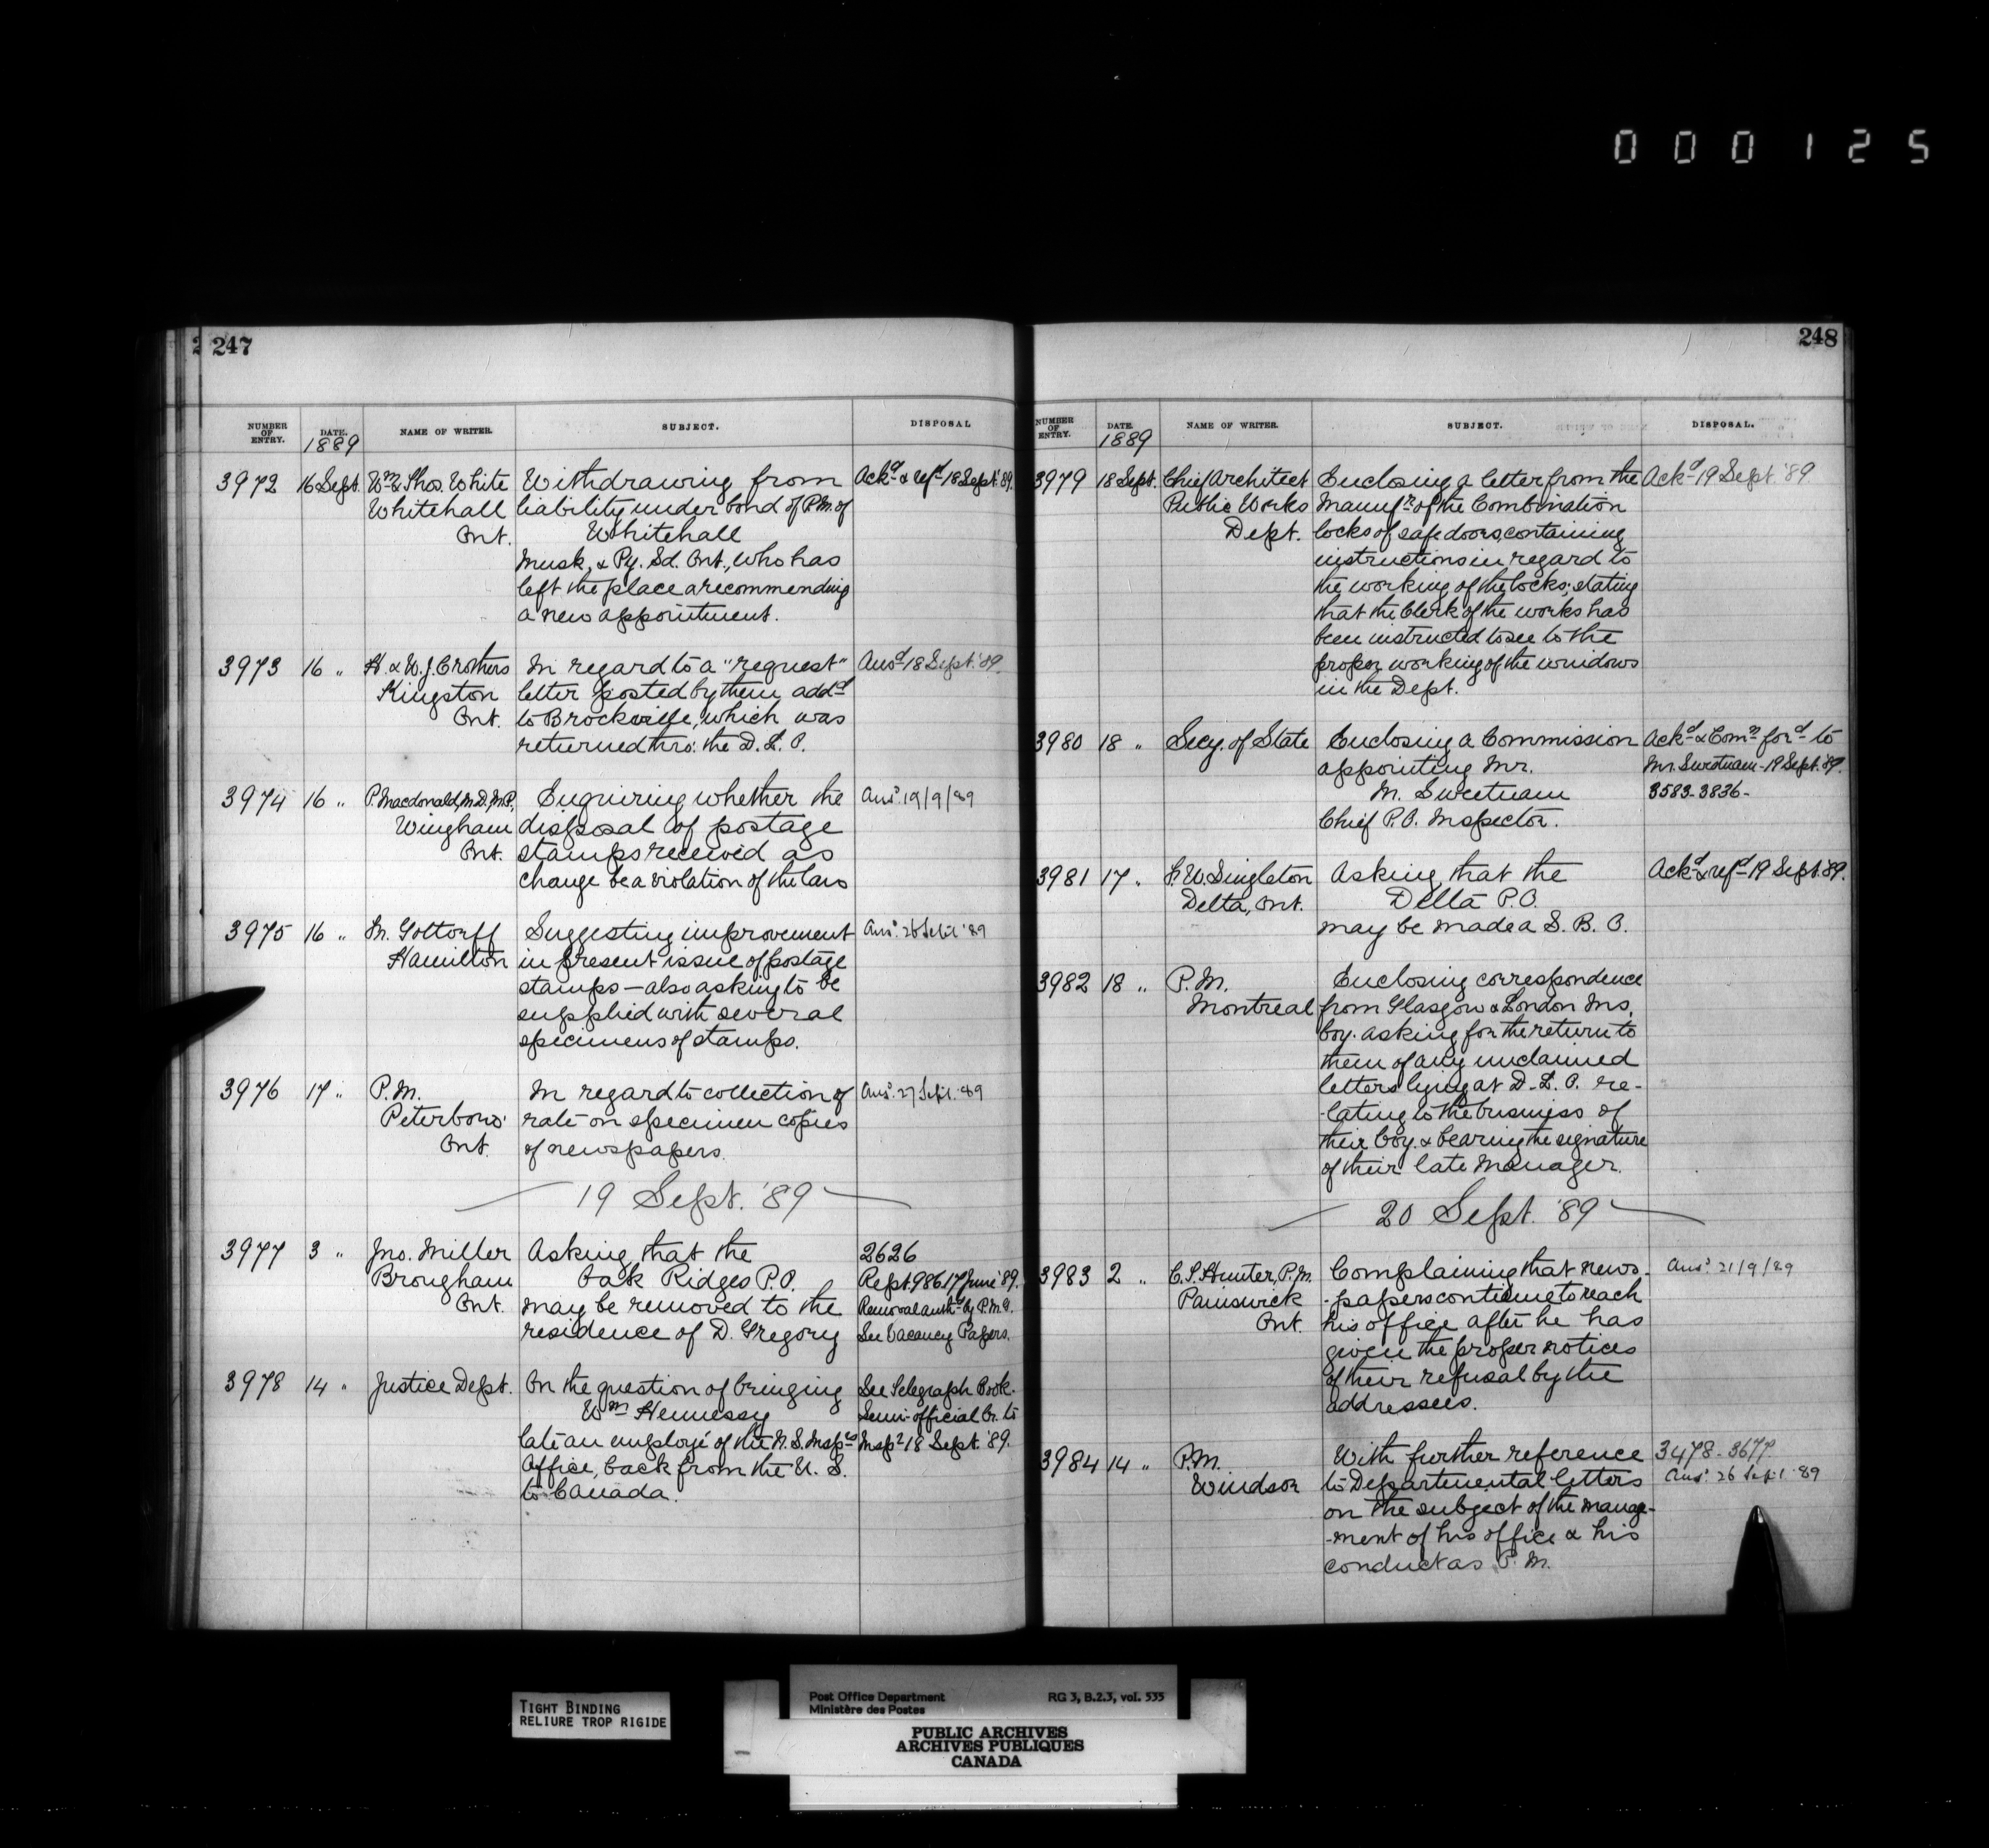 000125
247
NUMBER OF ENTRY. DATE. NAME OF WRITER. SUBJECT. DISPOSAL
1889
3972 16 Sept. Wm & Thos. White Withdrawing from Ackd & refd 18 Sept. '89.
Whitehall liability under bond of P.M. of
Ont. Whitehall
Musk, & Py. Sd. Ont., who has
left the place & recommending
a new appointment.
3973 16 " H. & W. J. Crothers In regard to a "request" Ansd 18 Sept. '89.
Kingston letter posted by them addd
Ont. to Brockville, which was
returned thro: the D. L. O.
3974 16 " P. Macdonald, M.D., M.P. Enquiring whether the Ansd. 19/9/89
Wingham disposal of postage
Ont. stamps received as
change be a violation of the law
3975 16 " M. Gottorff Suggesting improvement Ansd. 26 Sept '89
Hamilton in present issue of postage
stamps — also asking to be
supplied with several
specimens of stamps.
3976 17 " P. M. In regard to collection of Ansd. 27 Sept. '89
Peterboro' rate on specimen copies
Ont. of newspapers.
19 Sept. '89
3977 3 " Jno. Miller Asking that the 2626
Brougham Oak Ridges P.O. Rept. 986 17 June '89.
Ont. may be removed to the Removal authd by P.M.G.
residence of D. Gregory See Vacancy Papers.
3978 14 " Justice Dept. On the question of bringing See Telegraph Book.
Wm Hennessy Semi-official Br. to
late an employé of the N. S. Insprs Inspr 18 Sept. '89.
Office, back from the U. S.
to Canada.
248
NUMBER OF ENTRY. DATE. NAME OF WRITER. SUBJECT. DISPOSAL.
1889
3979 18 Sept. Chief Architect Enclosing a letter from the Ackd 19 Sept. '89
Public Works Manufrs of the Combination
Dept. locks of safe doors, containing
instructions in regard to
the working of the locks; stating
that the Clerk of the works has
been instructed to see to the
proper working of the windows
in the Dept.
3980 18 " Secy. of State Enclosing a Commission Ackd & Comn ford to
appointing Mr. Mr. Sweetnam - 19 Sept. '89.
M. Sweetnam 3583-3836-
Chief P.O. Inspector.
3981 17 " Singleton Asking that the Ackd & refd 19 Sept. '89.
Delta, Ont. Delta P.O.
may be made a S. B. O.
3982 18 " P.M. Enclosing correspondence
Montreal from Glasgow & London Ins.
Coy. asking for the return to
them of any unclaimed
letters lying at D. L. O. re-
-lating to the business of
their Coy. & bearing the signature
of their late Manager.
20 Sept. '89
3983 2 " C. S. Hunter, P.M. Complaining that news- Ansd. 21/9/89
Painswick -papers continue to reach
Ont. his office after he has
given the proper notices
of their refusal by the
addressees.
3984 14 " P.M. With further reference 3478-3677.
Windsor to Departmental letters Ansd. 26 Sept '89
on the subject of the manage-
-ment of his office & his
conduct as P. M.
TIGHT BINDING
RELIURE TROP RIGIDE
Post Office Department RG 3, B.2.3, vol. 535
Ministère des Postes
PUBLIC ARCHIVES
ARCHIVES PUBLIQUES
CANADA